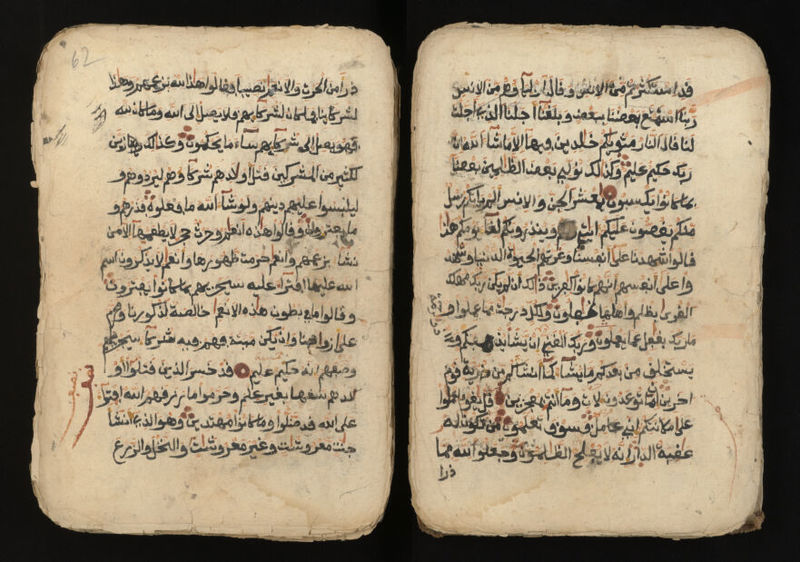 قد استكثرتم من الانس وقال اوليآؤهم من الانس
ربنا استمتع بعضنا ببعض وبلغنآ اجلنا الذي اجلت
لنا قال النار مثويكم خلدين فيها الا ما شآ الله ان
ربك حكيم عليم وكذلك نولي بعض الظلمين بعضا
بما كانوا يكسبون يمعشر الجن والانس الم ياتكم رسل
منكم يقصون عليكم ايتي وينذرونكم لقآ يومكم هذا
قالوا شهدنا علي انفسنا وغرتهم الحيوة الدنيا وشهد
وا علي انفسهم انهم كانوا كفرين ذلك ان لم يكن ربك مهلك
القري بظلم واهلها غفلون ولكل درجت مما عملوا و
ما ربك بغفل عما يعملون وربك الغني ان يشا يذهبكم و
ذو الرحمة
يستخلف من بعدكم ما يشآ كمآ انشاكم من ذرية قوم
اخرين ان ما توعدون لات ومآ انتم بمعجزين قل يقوم اعملوا
علي مكانتكم اني عامل فسوف تعلمون من تكون له
عقبة الدار انه لا يفلح الظلمون وجعلوا لله مما
ذرا
62
ذرا من الحرث والانعم نصيبا فقالوا هذا لله بزعمهم وهذا
لشركآينا فما كان لشركآيهم فلا يصل الي الله وما كان لله
فهو يصل الي شركآيهم سآء ما يحكمون وكذلك زين
لكثير من المشركين قتل اولادهم شركآؤهم ليردوهم و
ليلبسوا عليهم دينهم ولو شآ الله ما فعلوه فذرهم و
ما يفترون وقالوا هذه انعم وحرث حجر لا يطعمها الا من
نشآ بزعمهم وانعم حرمت ظهورها وانعم لا يذكرون اسم
الله عليها افترآ عليه سيجزيهم بما كانوا يفترون
وقالوا ما في بطون هذه الانعم خالصة لذكورنا ومحرم
علي ازواجنا وان يكن ميتة فهم فيه شركآ سيجزيهم
وصفهم انه حكيم عليم قد خسر الذين قتلوا او
لادهم سفها بغير علم وحرموا ما رزقهم الله افترآ
علي الله قد ضلوا وما كانوا مهتدين وهو الذي انشا
جنت معروشت وغير معروشت والنخل والزرع